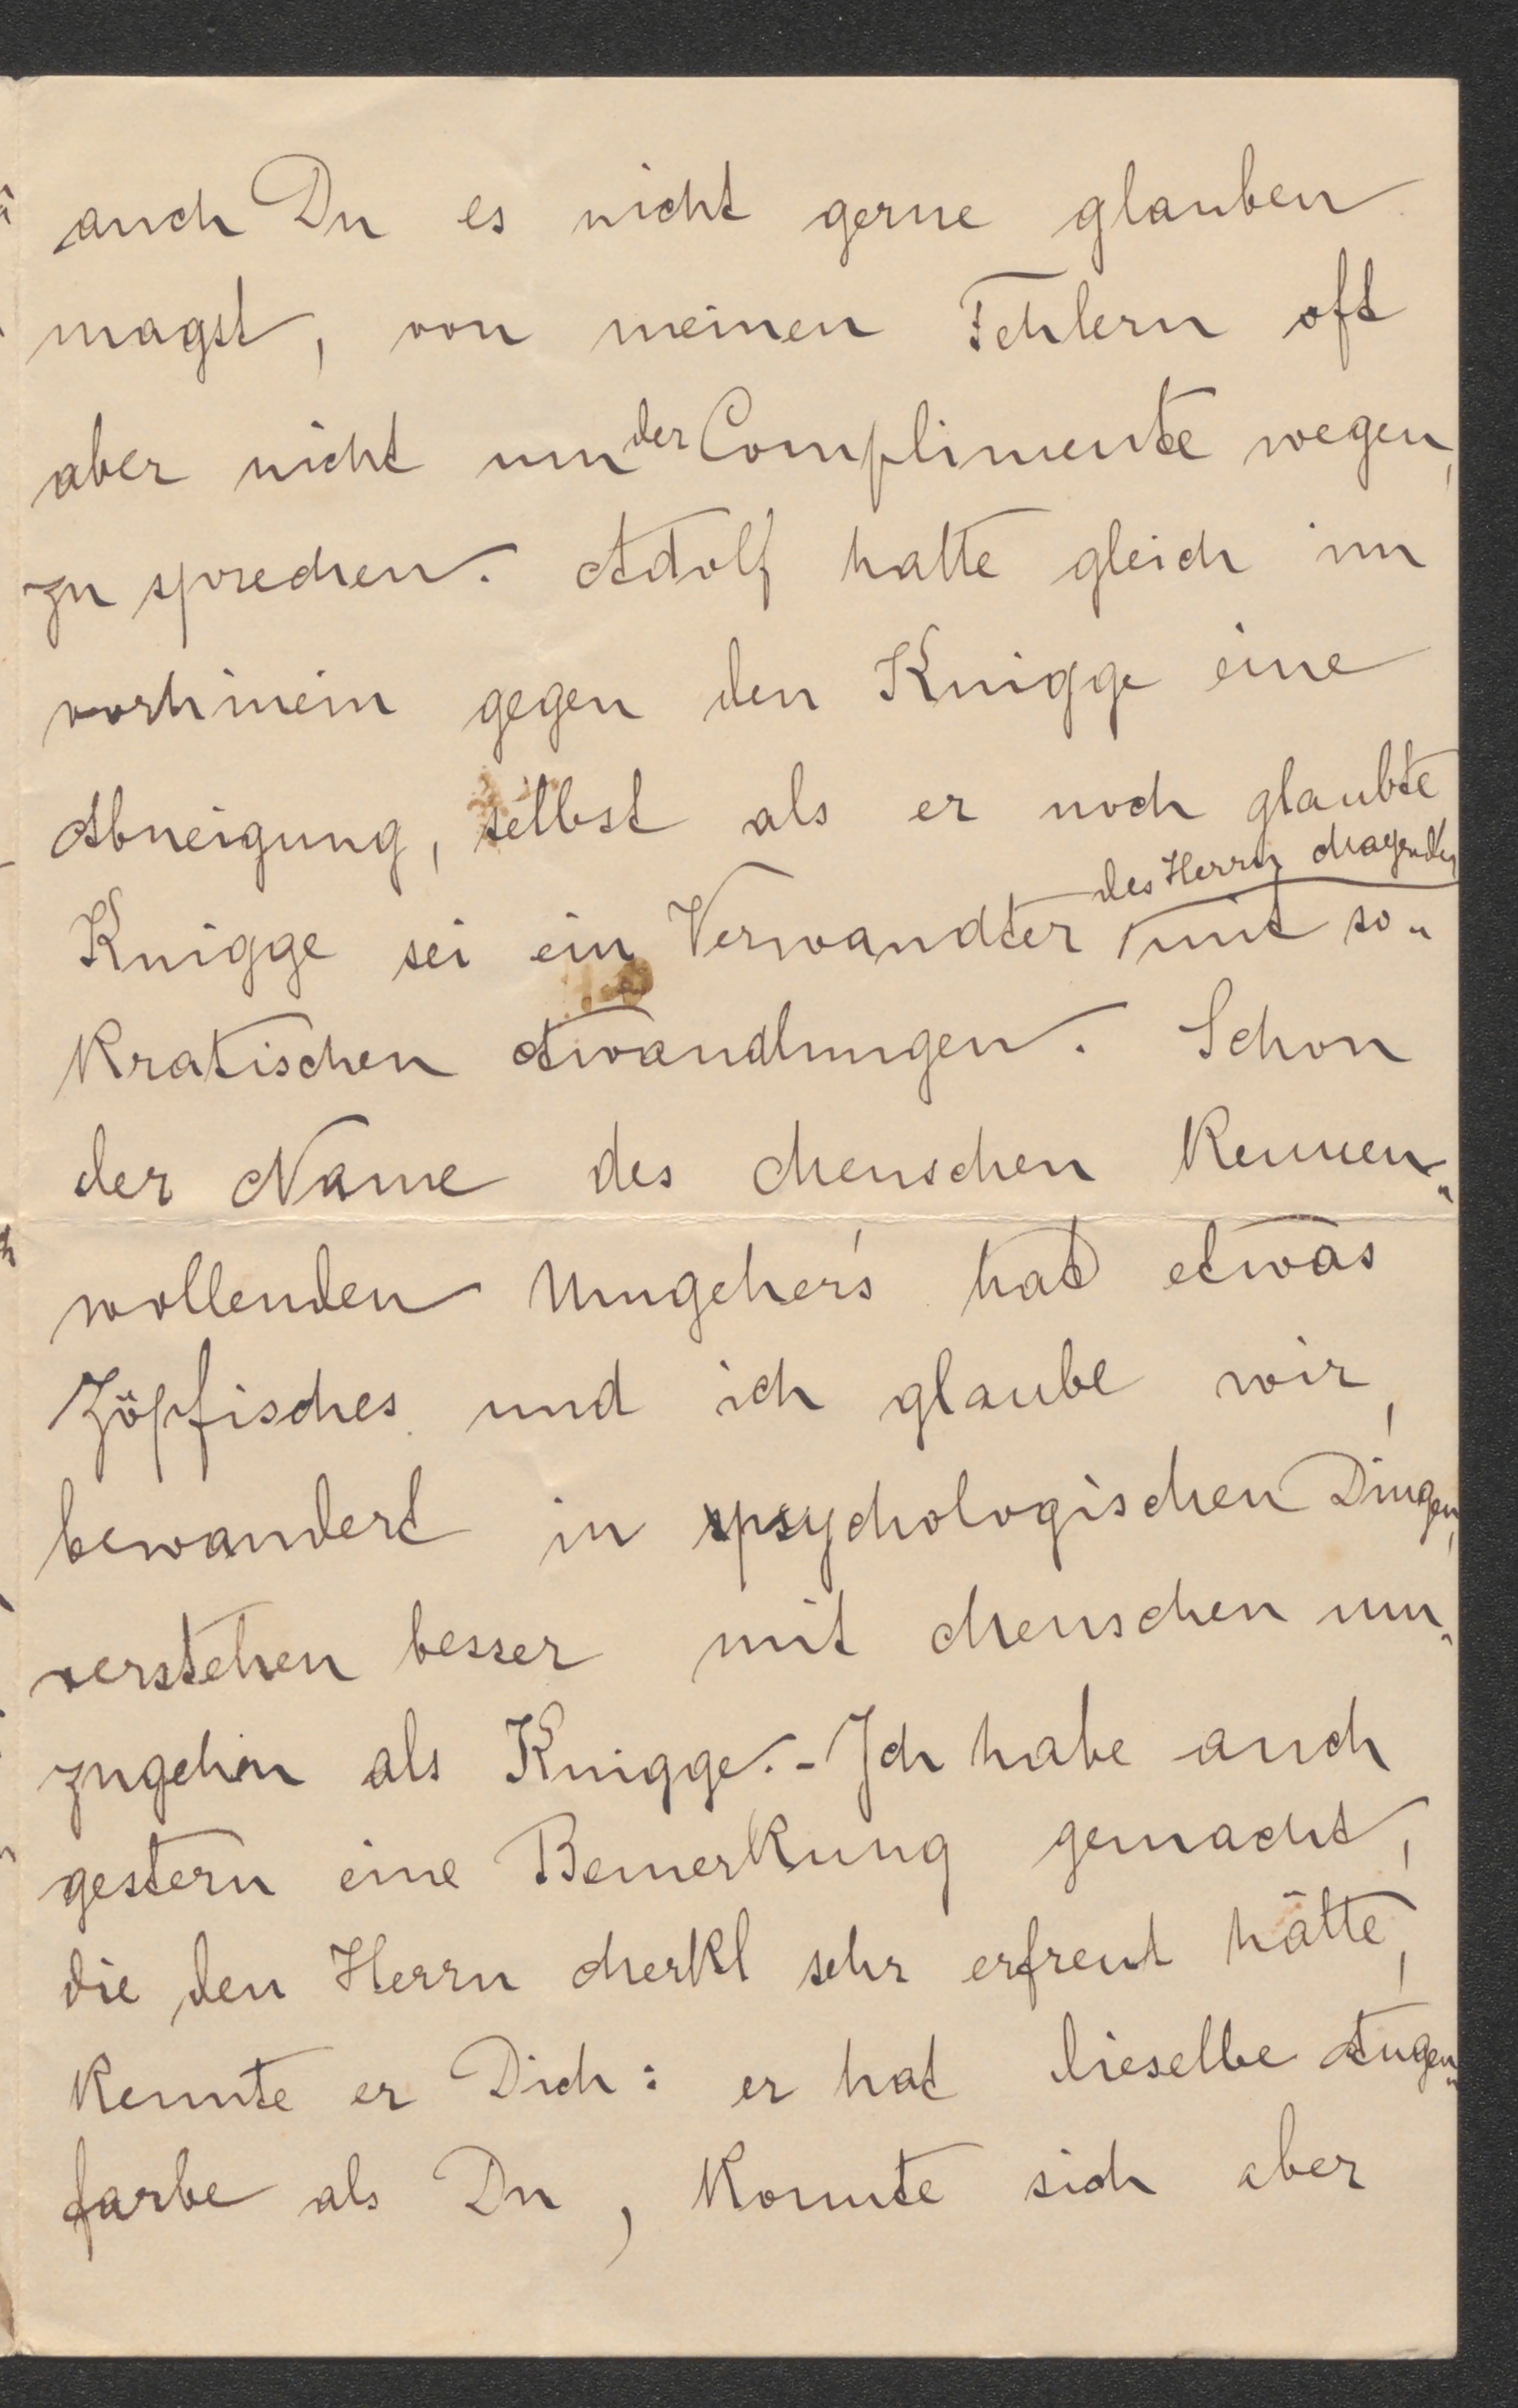 auch Du es nicht gerne glauben
magst, von meinen Fehlern oft
aber nicht um der Complimente wegen,
zu sprechen. Adolf hatte gleich im
vorhinein gegen den Knigge eine
Abneigung, selbst als er noch glaubte
Knigge sei ein Verwandter des Herrn mit so„
kratischen Awandlungen. Schon
der Name des Menschen Kennen„
wollenden Umgeher's hat etwas
Zöpfisches und ich glaube wir,
bewandert in psychologischen Dingen,
verstehen besser mit Menschen um„
zugehen als Knigge. - Ich habe auch
gestern eine Bemerkung gemacht,
die den Herrn Merkl sehr erfreut hätte,
kennte er Dich: er hat dieselbe Augen„
farbe als Du, konnte sich aber